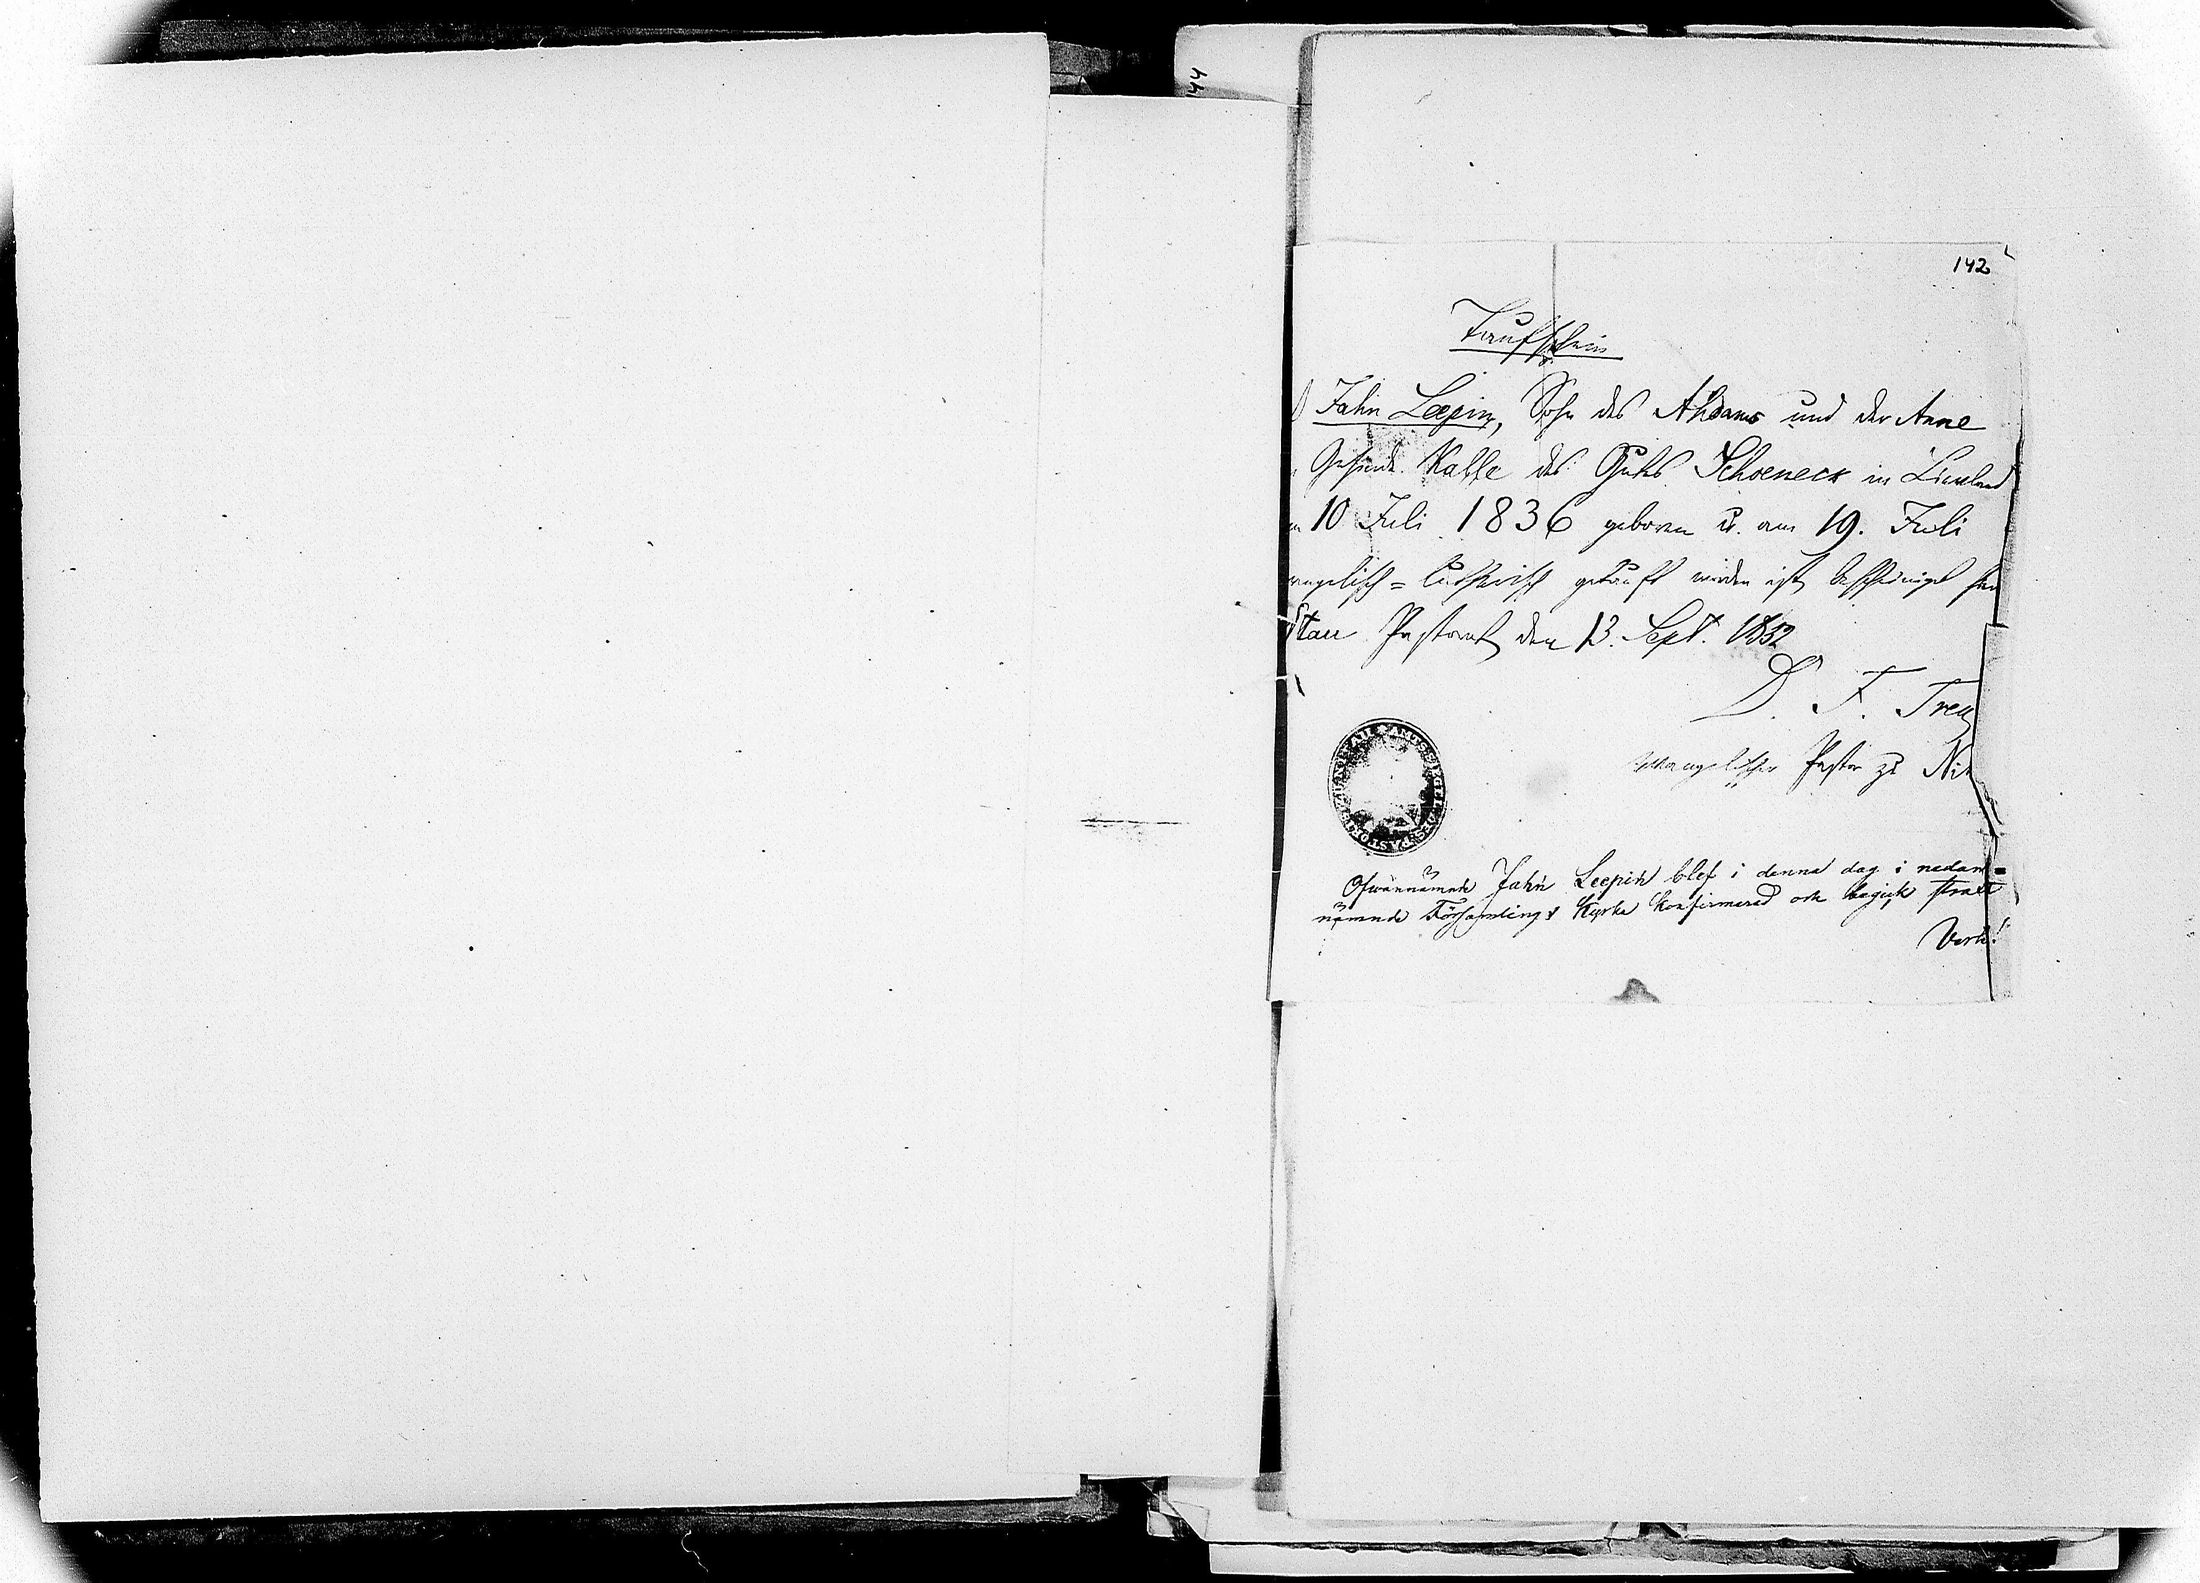 142
Taufschein
Jahn Leepin, Sohn des Ahdams und der Anne
Gesinde Kalle des Gutes Schoeneck in Liewland
10 Juli 1836 geboren u. am 19. Juli
angelisch = lutherisch getauft worden ist, bescheinigt
Pastorat den 13. Sept. 1852
D. F. Treu
evangelischer Pastor zu
Ofvannämnde Jahn Leepin blef i denna dag i nedan=
nämnde Församlings Kyrka konfirmerad och begick straxt
Vert!
44